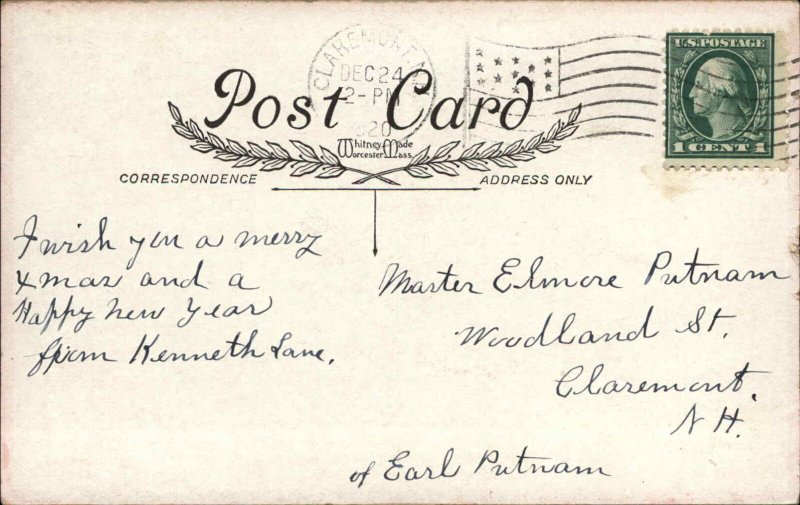 CLAREMONT N.H.
DEC 24
2-PM
1920
U.S. POSTAGE
1 CENT 1
Post Card
Whitney Made
Worcester, Mass.
CORRESPONDENCE
ADDRESS ONLY
I wish you a merry
Xmas and a
Happy New Year
from Kenneth Lane.
Master Elmore Putnam
Woodland St.
Claremont.
N.H.
of Earl Putnam